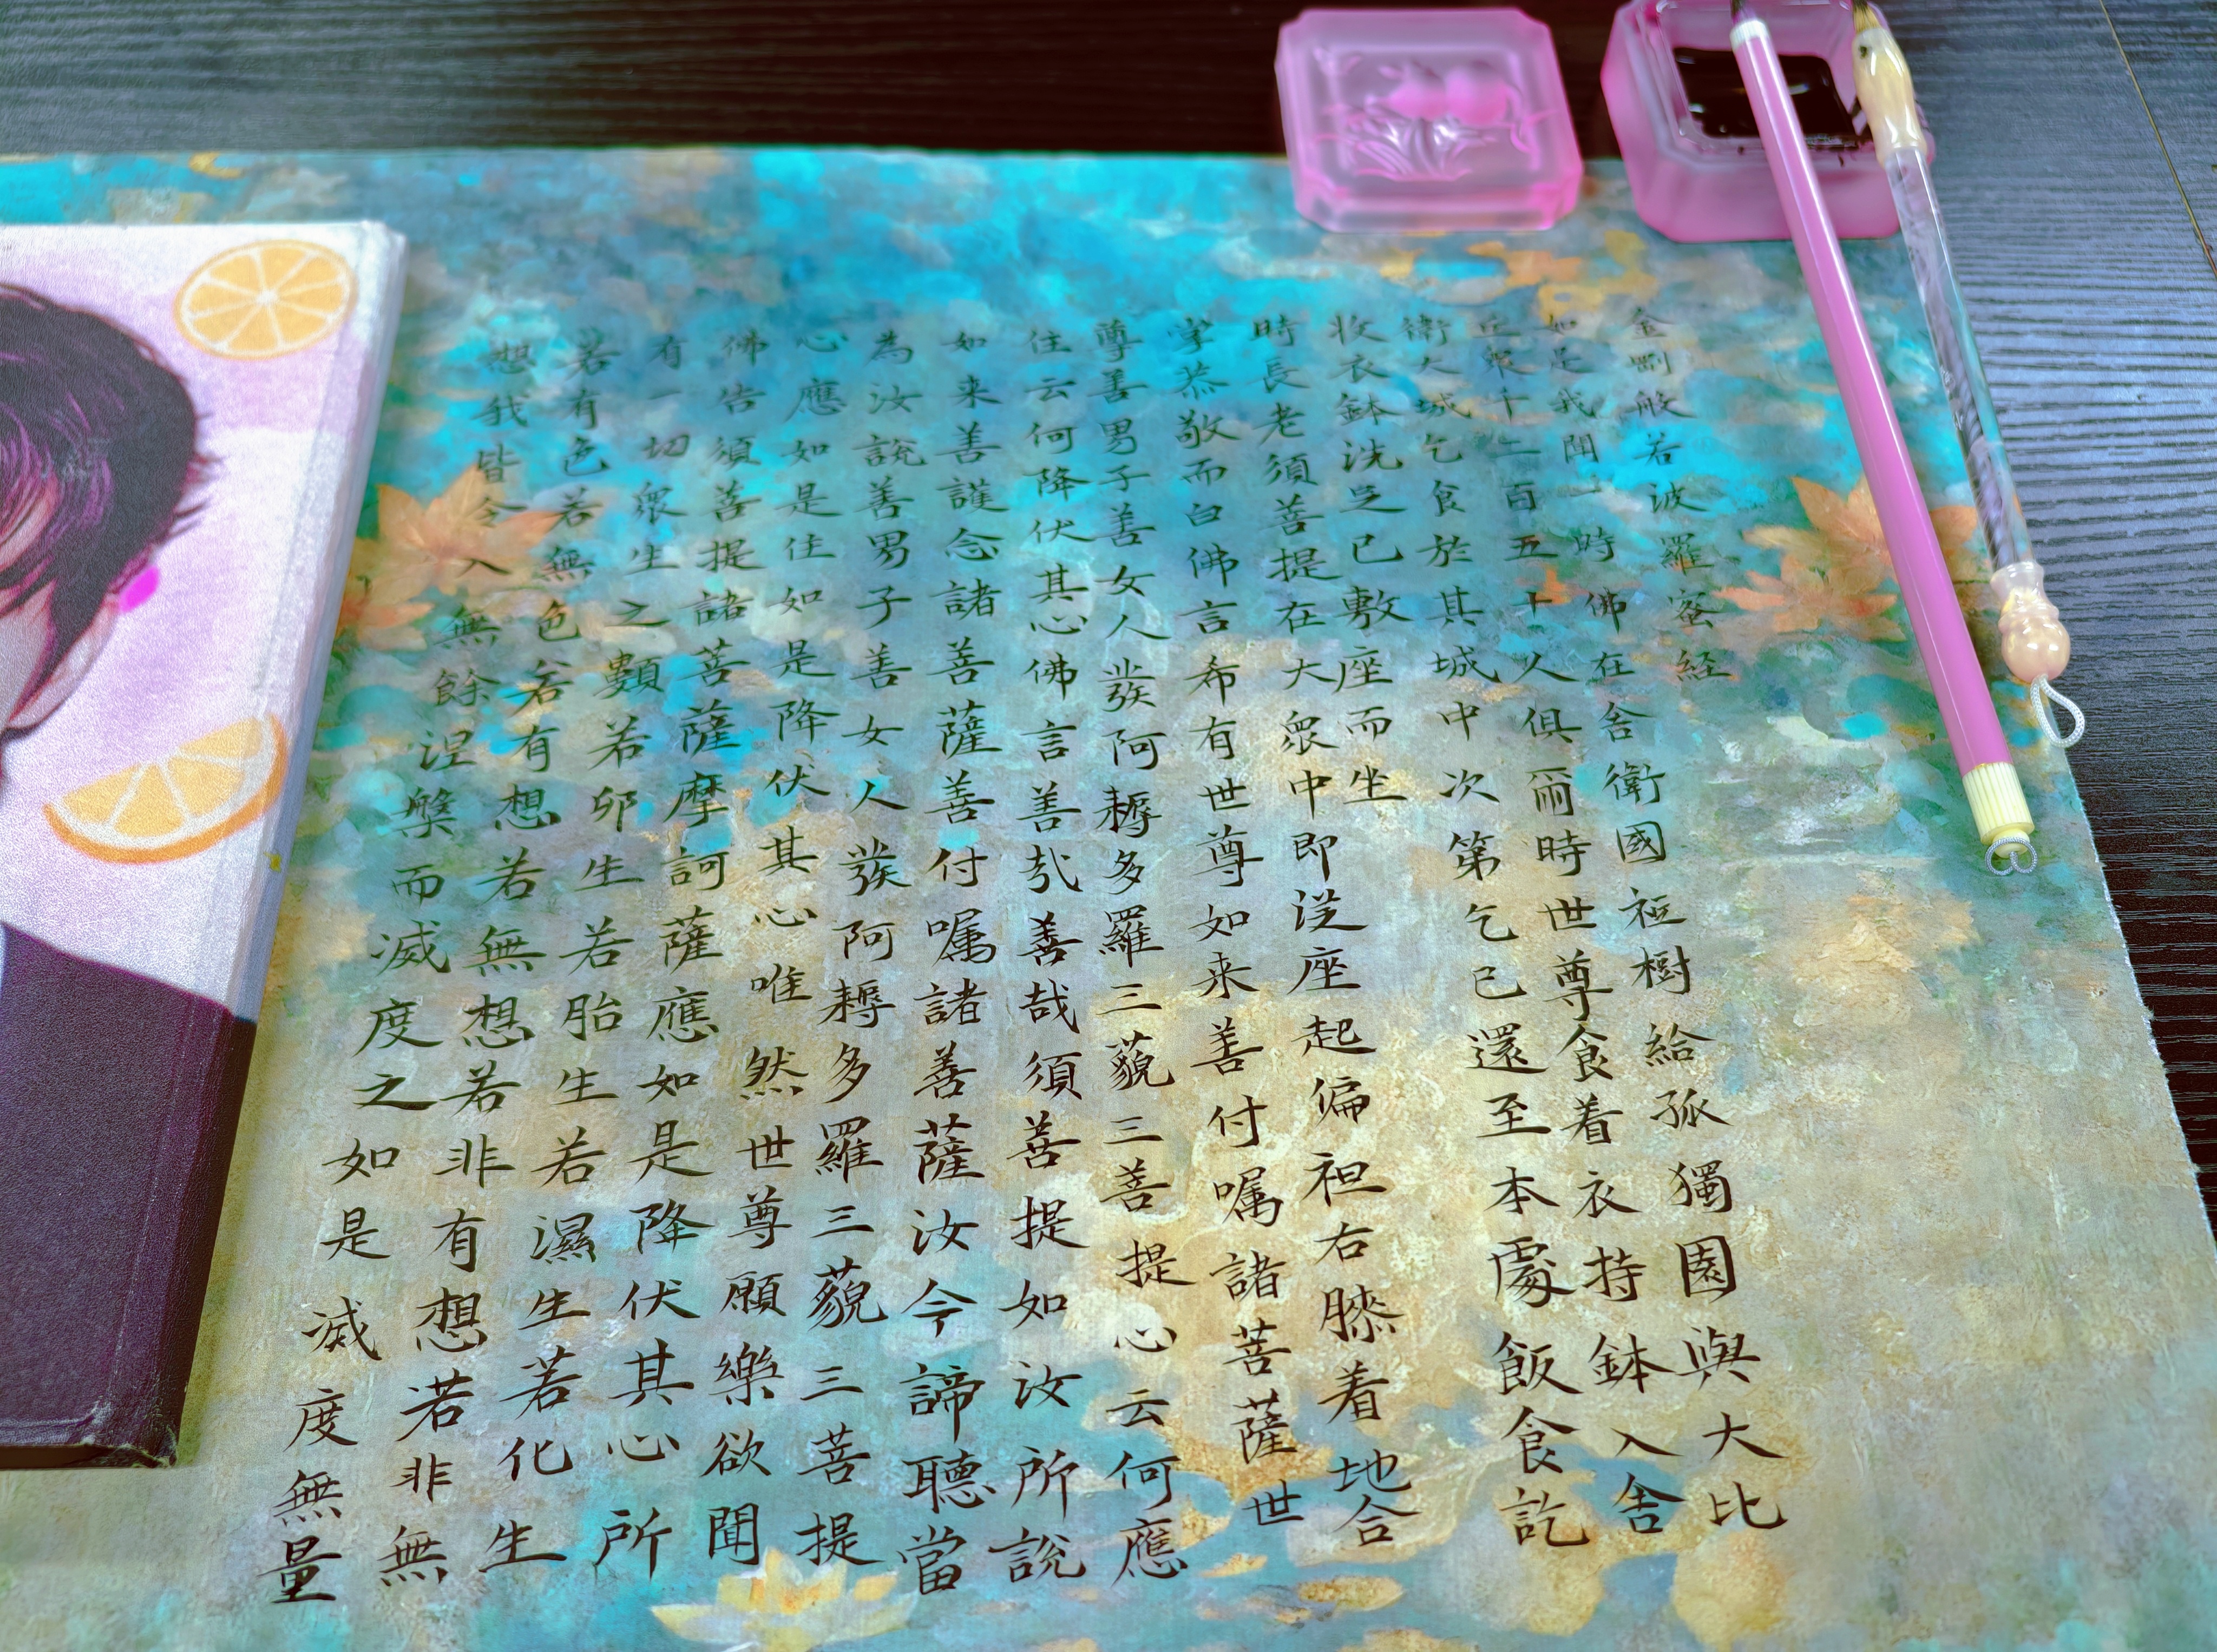 金剛般若波羅蜜経
如是我聞一時佛在舍衛國祗樹給孤獨園與大比
丘衆十二百五十人俱爾時世尊食着衣持鉢入舍
衛大城乞食於其城中次第乞已還至本處飯食訖
收衣鉢洗足已敷座而坐
時長老須菩提在大衆中即従座起偏袒右膝着地合
掌恭敬而白佛言希有世尊如来善付嘱諸菩薩世
尊善男子善女人發阿耨多羅三藐三菩提心云何應
住云何降伏其心佛言善哉善哉須菩提如汝所說
如来善護念諸菩薩善付嘱諸菩薩汝今諦聽當
為汝說善男子善女人發阿耨多羅三藐三菩提
心應如是住如是降伏其心唯然世尊願樂欲聞
佛告須菩提諸菩薩摩訶薩應如是降伏其心所
有一切衆生之類若卵生若胎生若濕生若化生
若有色若無色若有想若無想若非有想若非無
想我皆令入無餘涅槃而滅度之如是滅度無量